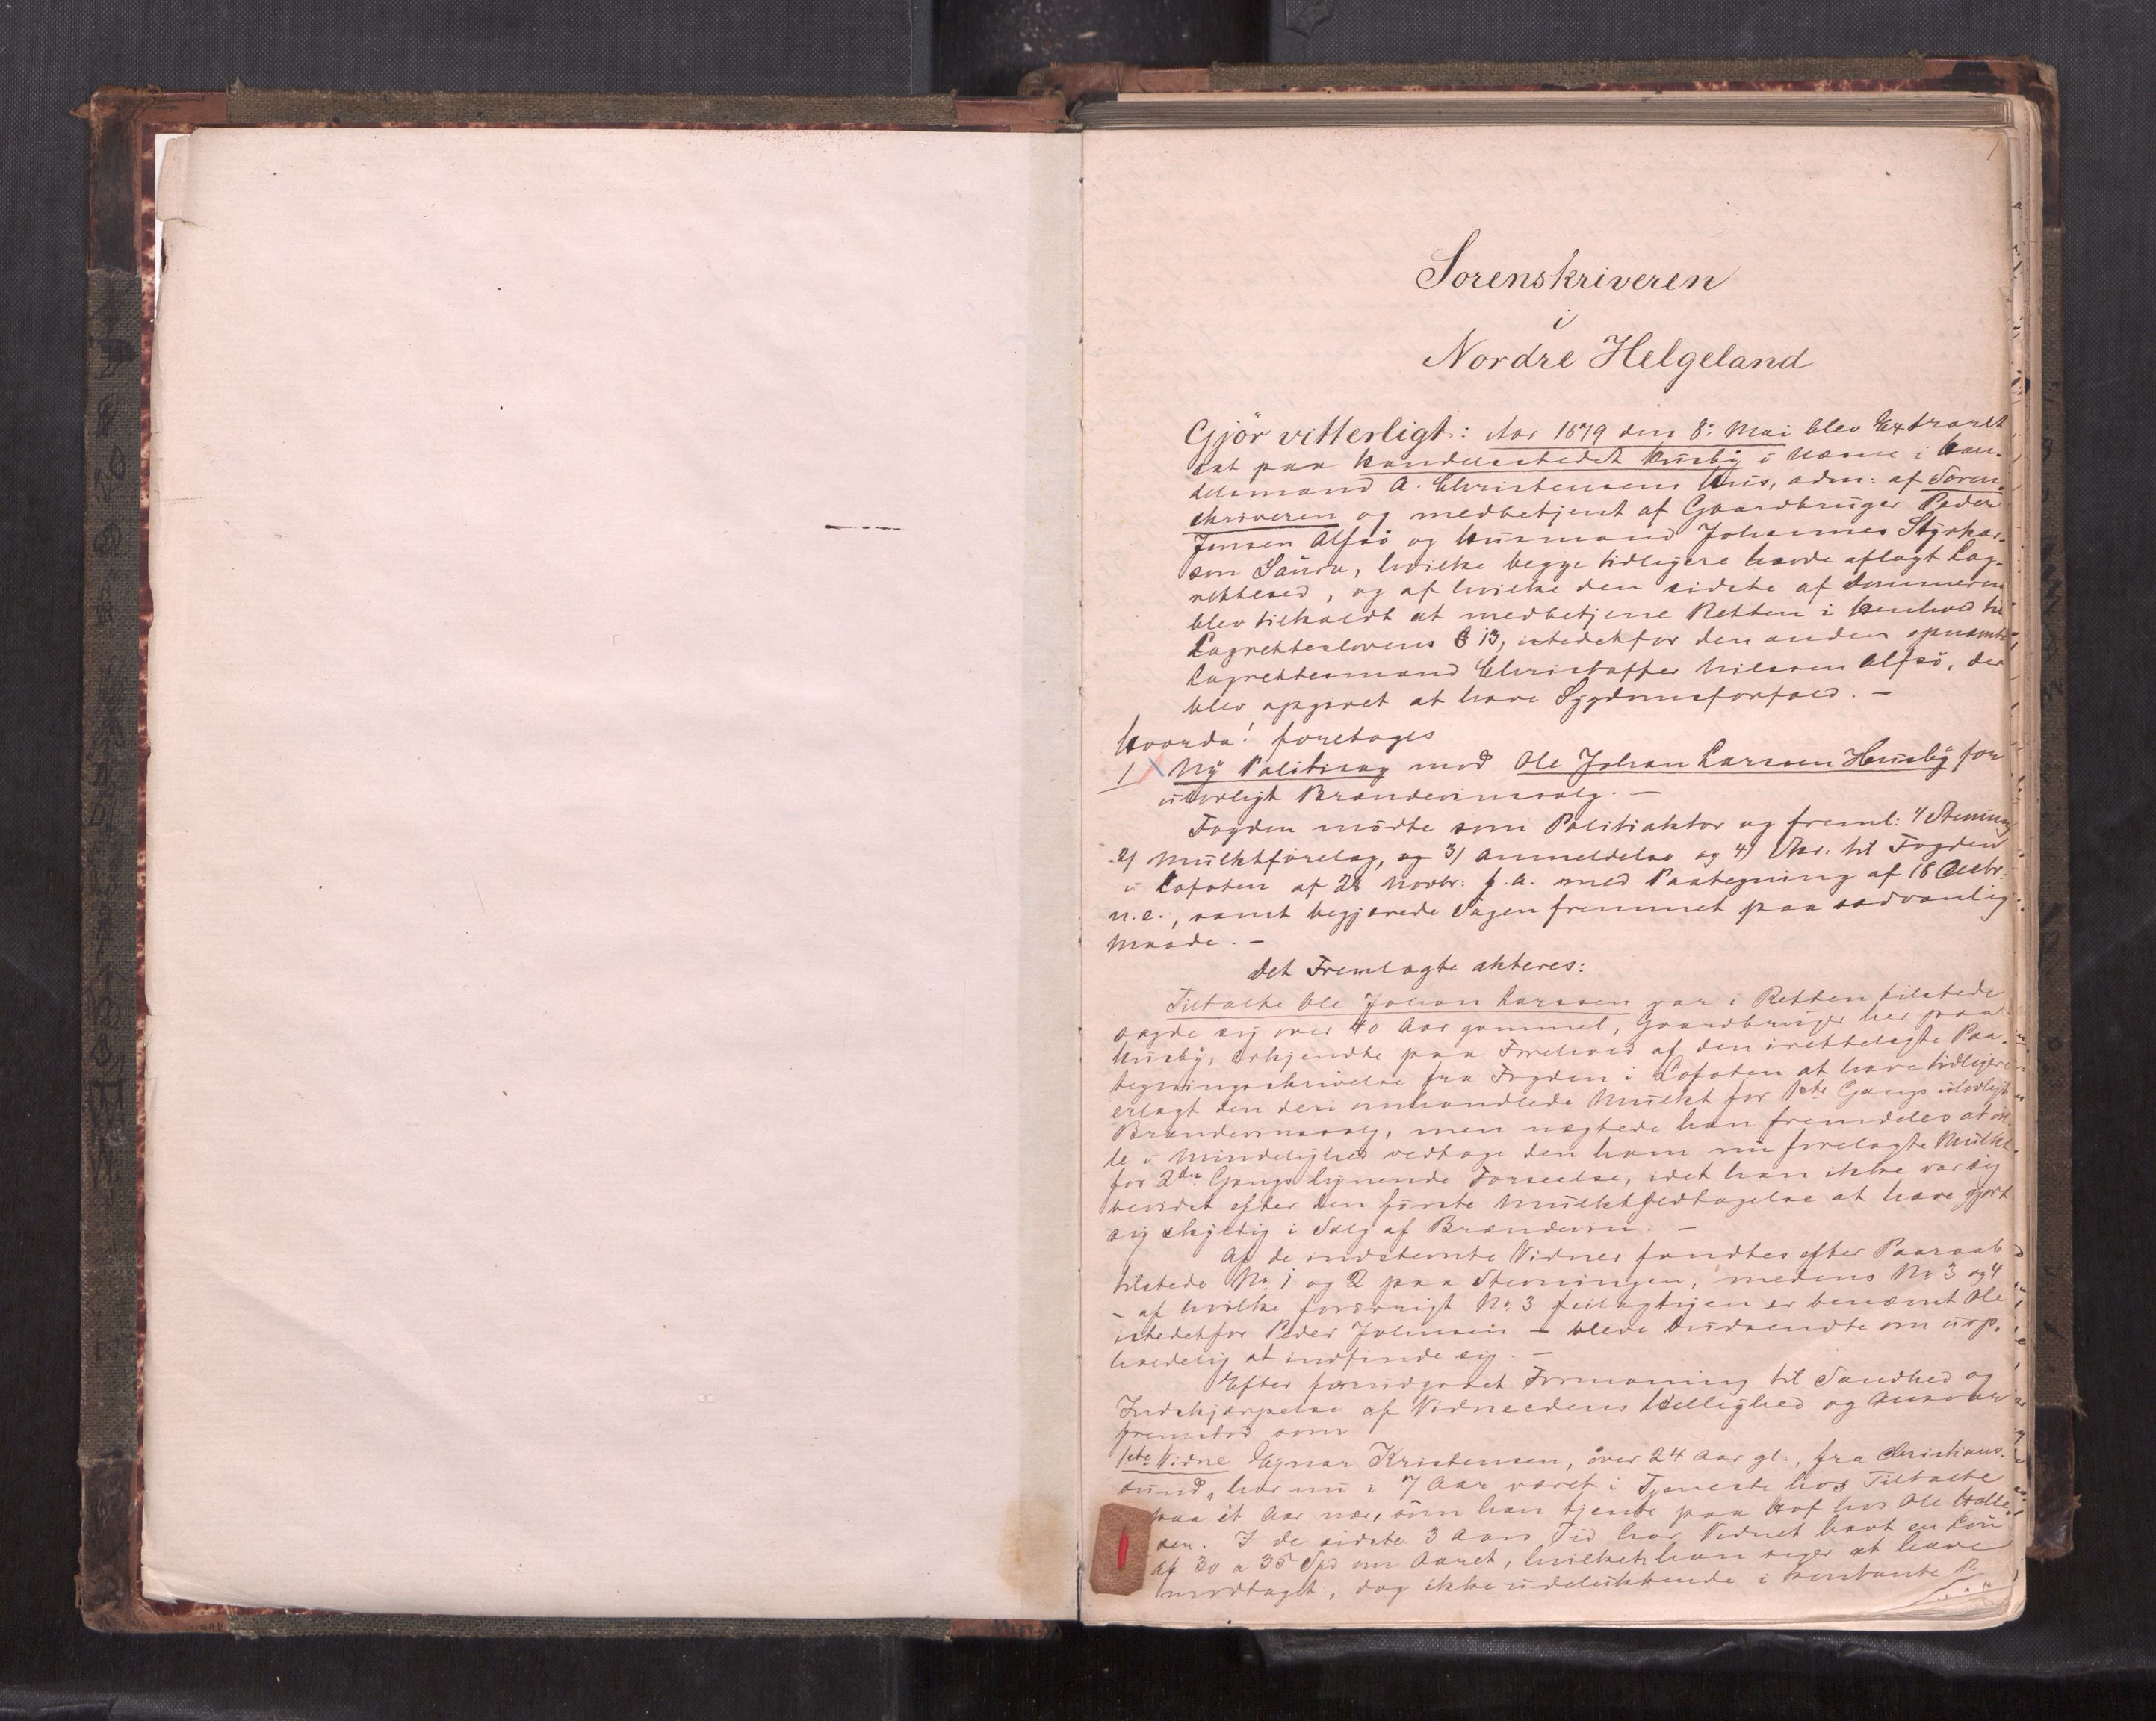 Sorenskriveren
i
Nordre Helgeland
Gjör vitterligt: Aar 1879 den 8: Mai blev Extraret
sat paa Handelsstedet Husby i Næsne i Han-
delsmand A. Christensens Hus, adm: af Soren-
skriveren og medbetjent af Gaardbruger Peder
Jensen Alfsö og Husmand Johannes Styrkar-
sen Saura, hvilke begge tidligere havde aflagt Lag-
rettesed, og af hvilke den sidste af Dommeren
blev tilkaldt at medbetjene Retten i Henhold til
Lagretteslovens § 13, istedetfor den anden opnævnte
Lagrettesmand Christoffer Nilssen Alfsö, der
blev opgivet at have Sygdomsforfald. –
Hvorda! foretages
1/ Ny Politisag mod Ole Johan Larssen Husby for
ulovligt Brændevinssalg. –
Fogden mödte som Politiaktor og freml: 1/ Stevning
2/ Mulktforelæg, og 3/ Anmeldelse og 4/ Skr: til Fogden
i Lofoten af 28 Novbr: f.A. med Paategning af 18 Decbr:
n.e., samt begjærede Sagen fremmet paa sædvanlig
Maade. –
Det Fremlagte akteres:
Tiltalte Ole Johan Larssen var i Retten tilstede
sagde sig over 40 Aar gammel, Gaardbruger her paa
Husby, erkjendte paa Forehold af den irettelagte Paa-
tegningsskrivelse fra Fogden i Lofoten at have tidligere
erlagt den deri omhandlede Mulkt for 1ste Gangs ulovligt
Brændevinssalg, men nægtede han fremdeles at vil-
le i Mindelighed vedtage den ham nu forelagte Mulkt
for 2den Gangs lignende Forseelse, idet han ikke var sig
bevidst efter den förste Mulktvedtagelse at have gjort
sig skyldig i Salg af Brændevin. –
Af de indstevnte Vidner fandtes efter Paaraab
tilstede No 1 og 2 paa Stevningen, medens No 3 og 4
– af hvilke forövrigt No. 3 feilagtigen er benævnt Ole
istedetfor Peder Johnsen – bleve budsendte om uop-
holdelig at indfinde sig. –
Efter forudgaaet Formaning til Sandhed og
Indskjærpelse af Vidneedens Hellighed og Ansvar
fremstod som
1ste Vidne Egnar Kristensen, over 24 Aar gl:, fra Christians-
sund, har nu i 7 Aar været i Tjeneste hos Tiltalte
paa ét Aar nær, som han tjente paa Hof hos Ole Halle-
sen. I de sidste 3 Aars Tid har Vidnet havt en Lön
af 30 a 35 Spd om Aaret, hvilket han siger at have
modtaget, dog ikke udelukkende i kontante P.